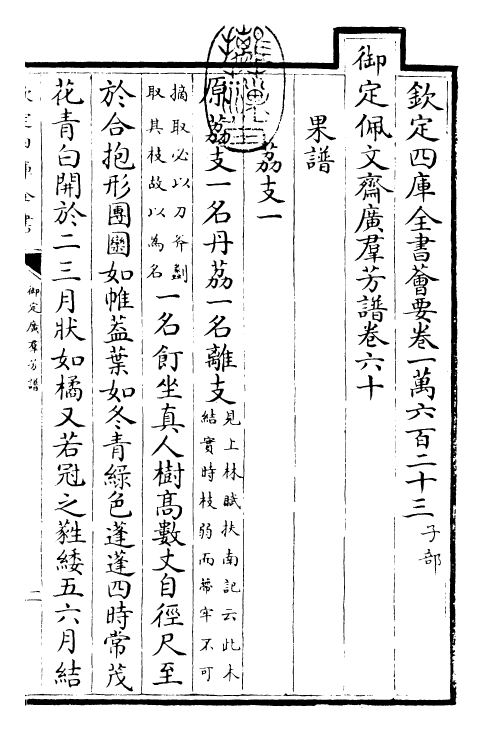 欽定四庫全書薈要卷一萬六百二十三 子部
御定佩文齋廣羣芳譜卷六十
果譜
荔支一
原荔支一名丹荔一名離支 見上林賦扶南記云此木
結實時枝弱而蒂牢不可
摘取必以刀斧劙
取其枝故以為名
一名飣坐真人樹高數丈自徑尺至
於合抱形團圞如帷蓋葉如冬青綠色蓬蓬四時常茂
花青白開於二三月狀如橘又若冠之蕤緌五六月結
欽定四庫全書
御定廣羣芳譜